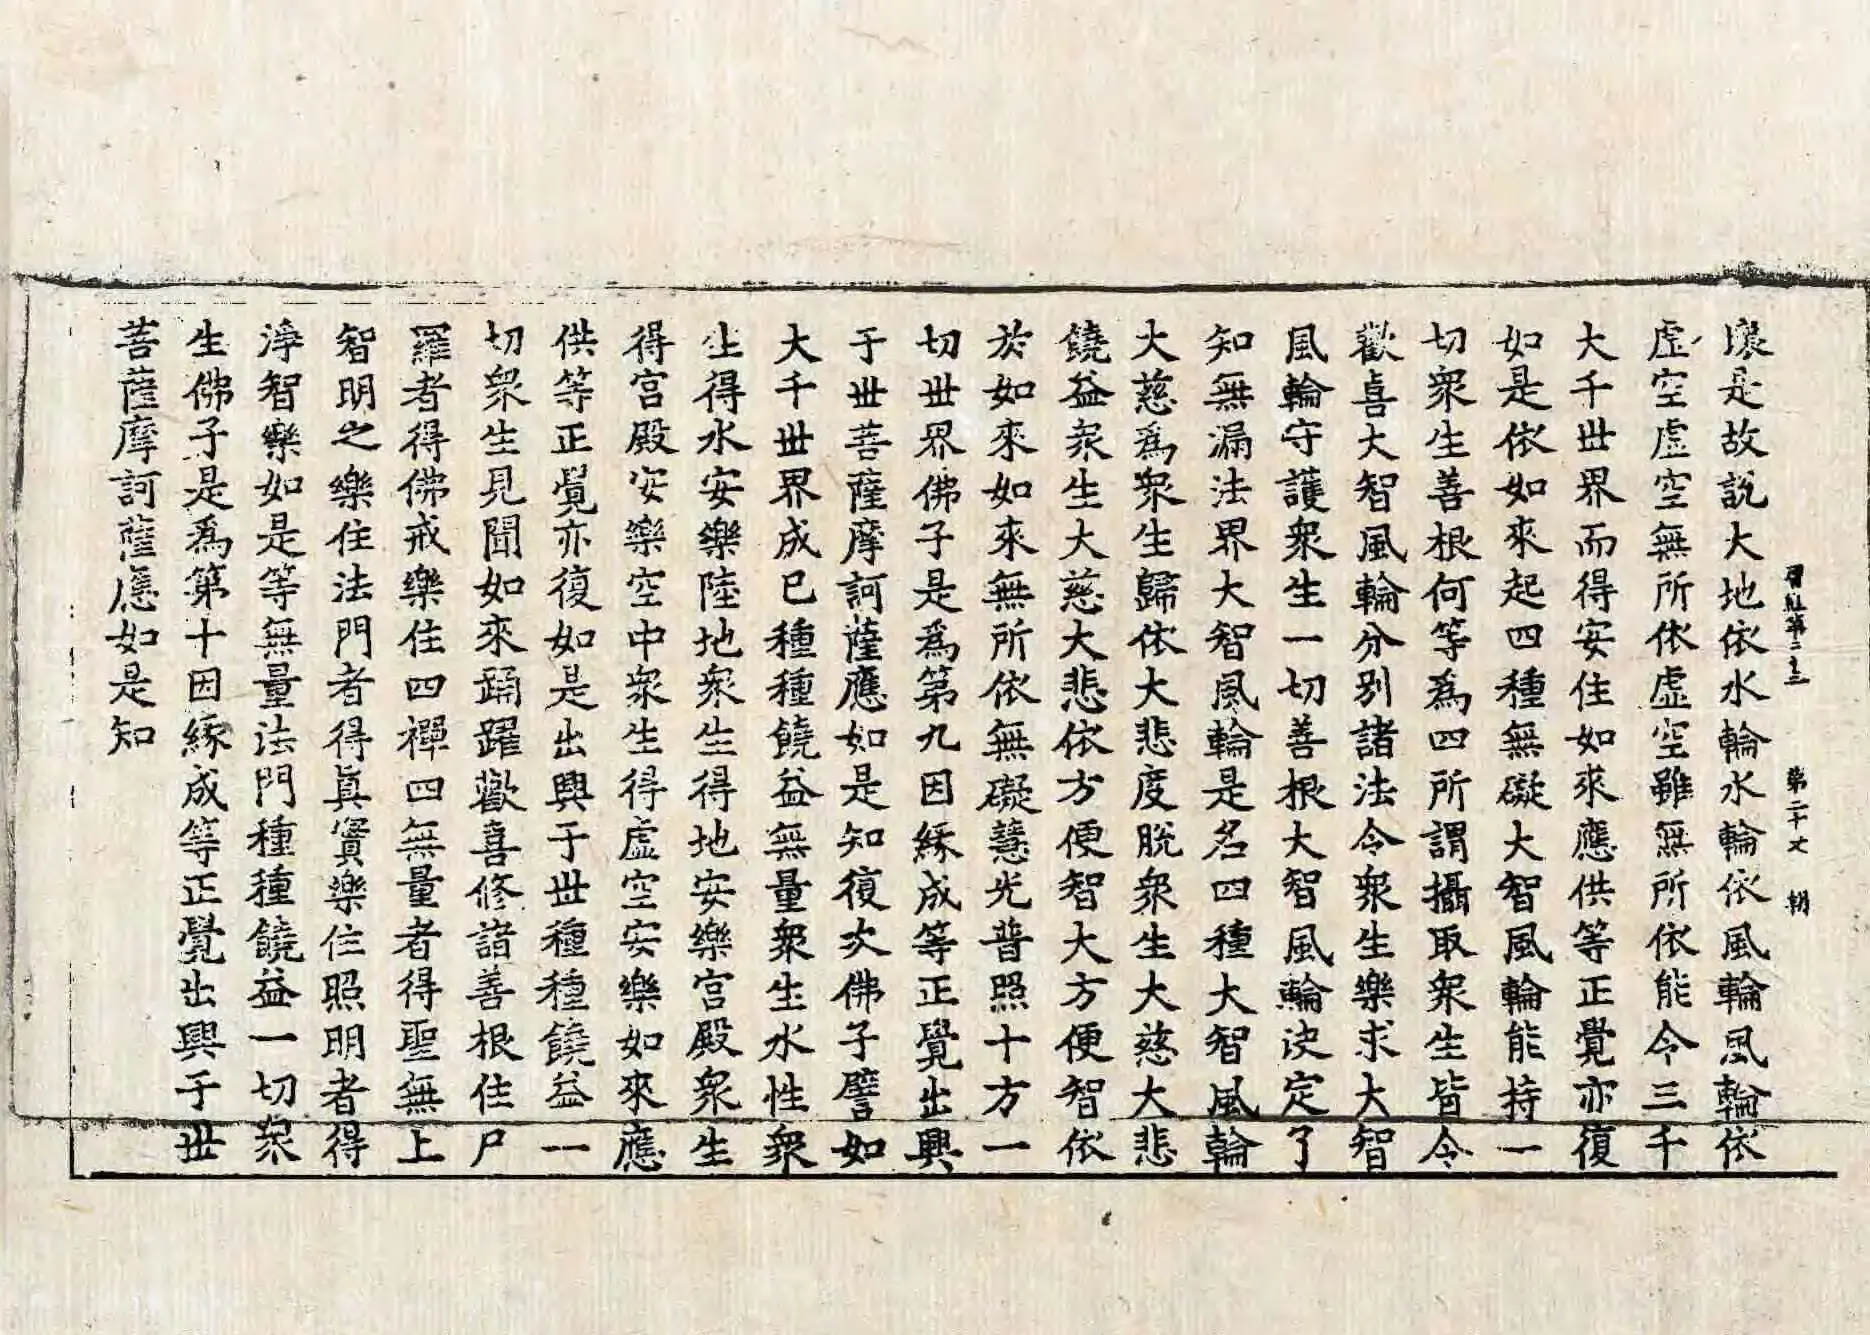 壞是故說大地依水輪水輪依風輪風輪依
虛空虛空無所依虛空雖無所依能令三千
大千世界而得安住如來應供等正覺亦復
如是依如來起四種無礙大智風輪能持一
切衆生善根何等爲四所謂攝取衆生皆令
歡喜大智風輪分別諸法令衆生樂求大智
風輪守護衆生一切善根大智風輪決定了
知無漏法界大智風輪是名四種大智風輪
大慈爲衆生歸依大悲度脫衆生大慈大悲
饒益衆生大慈大悲依方便智大方便智依
於如來如來無所依無礙慧光普照十方一
切世界佛子是爲第九因緣成等正覺出興
于世菩薩摩訶薩應如是知復次佛子譬如
大千世界成已種種饒益無量衆生水性衆
生得水安樂陸地衆生得地安樂宮殿衆生
得宮殿安樂空中衆生得虛空安樂如來應
供等正覺亦復如是出興于世種種饒益一
切衆生見聞如來踊躍歡喜修諸善根住尸
羅者得佛戒樂住四禪四無量者得聖無上
智明之樂住法門者得眞實樂住照明者得
淨智樂如是等無量法門種種饒益一切衆
生佛子是爲第十因緣成等正覺出興于世
菩薩摩訶薩應如是知